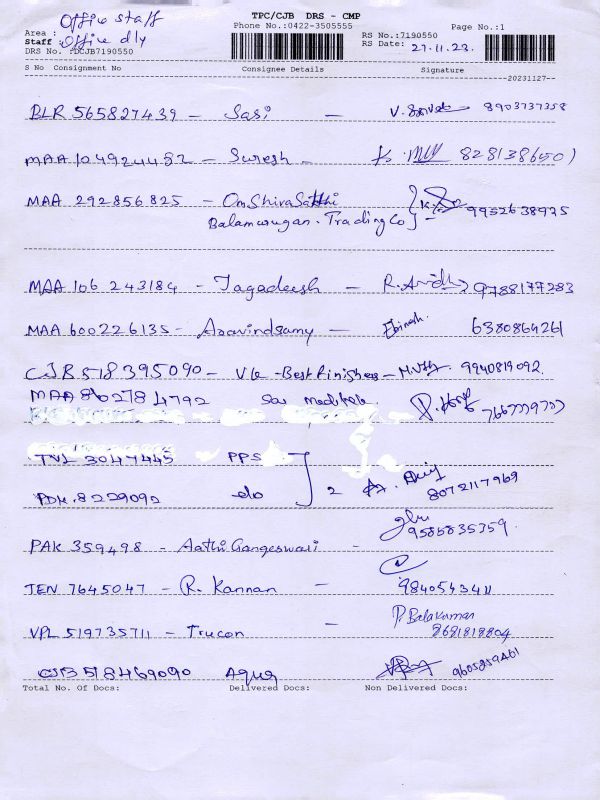 TPC/CJB DRS - CMP
Office staff
Phone No.:0422-3505555
Page No.:1
Area :
Staff Office dly
RS No.:7190550
RS Date: 27.11.23.
DRS No. :DCJB7190550
S No Consignment No Consignee Details Signature
20231127--
BLR 565827439 - Sasi - 8903737358
MAA 104924482 - Suresh - 8281386501
MAA 292856825 - OmShiraSakthi
Balamurugan. Trading Co 9952638975
MAA 106 243184 - Jagadeesh - 9788177283
MAA 600226135 - Aravindsamy - Ebinesh. 6380864261
CJB 518395090 - VG - Best Finishers - 9940819092.
MAA 862784792 Sai medi
TVL 3047445 PPS
PDK. 8229092 do 2 8072117969
PAK 359498 - Aathi Gangeswari - 9585835359.
TEN 7645047 - R. Kannan - 9840543411
VPL 519735711 - Trucon - P. Balakumar
8681818804
CJB 518469090 Aqua 9605859461
Total No. Of Docs: Delivered Docs: Non Delivered Docs: